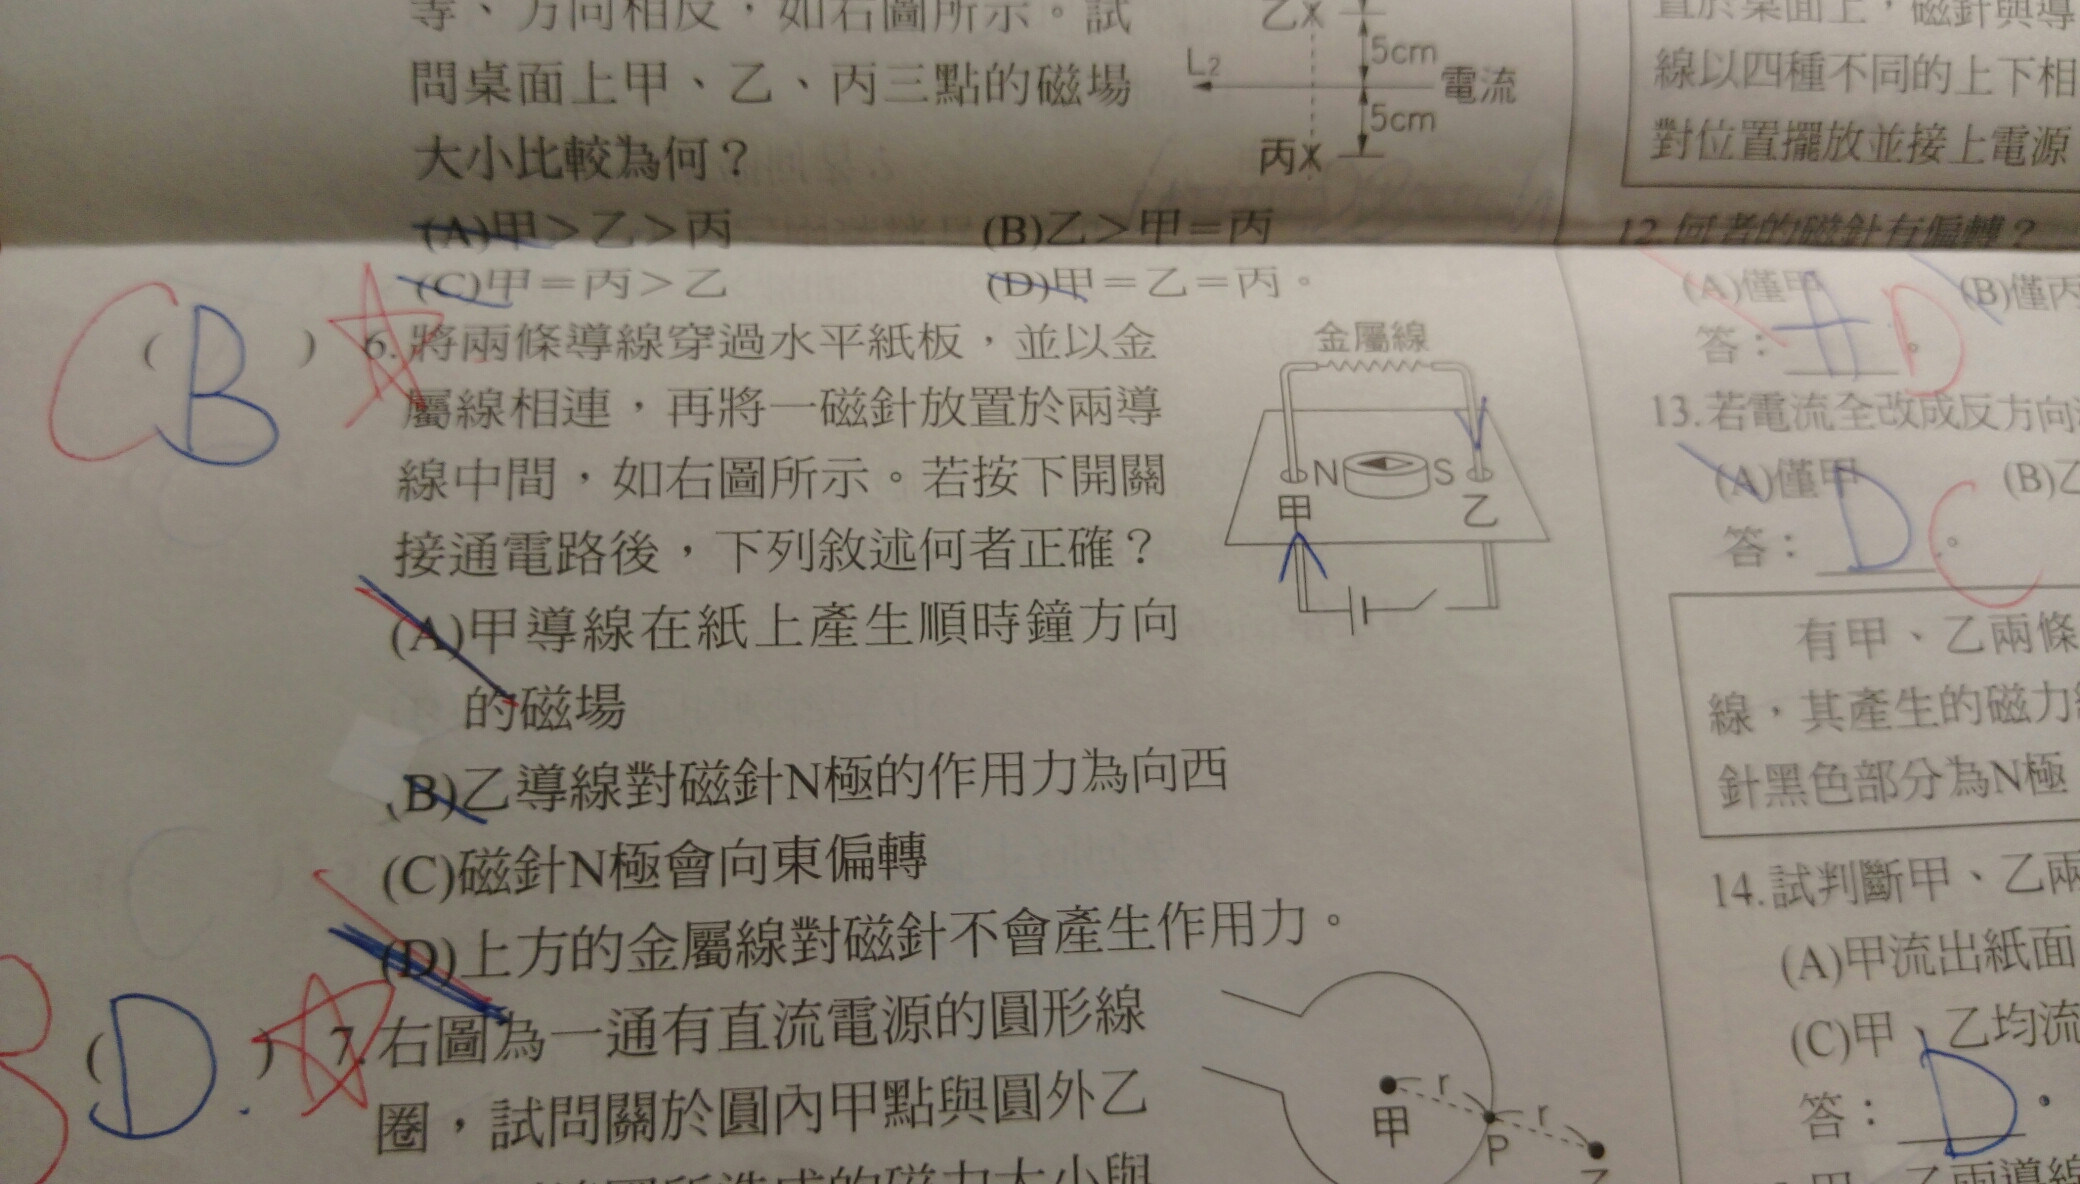 等、方向相反,如右圖所示。試
問桌面上甲、乙、丙三點的磁場
大小比較為何?
(A)甲>乙>丙 (B)乙>甲=丙
(C)甲=丙>乙 (D)甲=乙=丙。
乙
5cm
L2
電流
5cm
丙
C
( B ) 6. 將兩條導線穿過水平紙板,並以金
屬線相連,再將一磁針放置於兩導
線中間,如右圖所示。若按下開關
接通電路後,下列敘述何者正確?
(A)甲導線在紙上產生順時鐘方向
的磁場
(B)乙導線對磁針N極的作用力為向西
(C)磁針N極會向東偏轉
(D)上方的金屬線對磁針不會產生作用力。
金屬線
N S
甲 乙
B
( D ) 7. 右圖為一通有直流電源的圓形線
圈,試問關於圓內甲點與圓外乙
r
甲
r
P
乙
置於桌面上,磁針與導
線以四種不同的上下相
對位置擺放並接上電源
12.何者的磁針有偏轉?
(A)僅甲 (B)僅丙
答: A D 。
13.若電流全改成反方向
(A)僅甲 (B)乙
答: D C 。
有甲、乙兩條
線,其產生的磁力
針黑色部分為N極
14.試判斷甲、乙兩
(A)甲流出紙面
(C)甲、乙均流
答: D 。
甲、乙兩導線